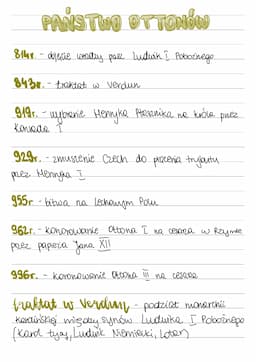 PAŃSTWO OTTONÓW
814r. - objęcie władzy przez Ludwik I Pobożnego
843r. - traktat w Verdun
919r. - wybranie Henryka Ptasznika na króla przez
Konrada I
929r. - zmuszenie Czech do płacenia trybutu
przez Henryka I
955r - bitwa na Lechowym Polu
962r. - koronowanie Ottona I na cesarza w Rzymie
przez papieża Jana XII
996r. - koronowanie Ottona III na cesarza
traktat w Verdun - podział monarchii
karolińskiej między synów Ludwika I Pobożnego
(Karol Łysy, Ludwik Niemiecki, Lotar)